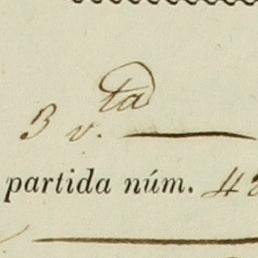 3 v.ta
partida núm. 42